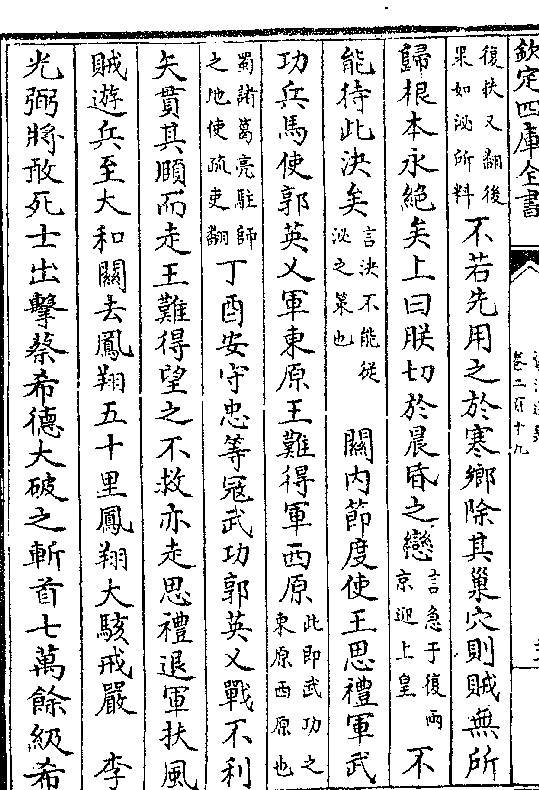 欽定四庫全書
卷二百十九
復扶又翻後果如泌所料不若先用之於寒鄉除其巢穴則賊無所
歸根本永絶矣上曰朕切於晨昏之戀言急于復兩京迎上皇不
能待此決矣言決不能從泌之策也 關内節度使王思禮軍武
功兵馬使郭英乂軍東原王難得軍西原此即武功之東原西原也
蜀諸葛亮駐師之地使疏吏翻丁酉安守忠等寇武功郭英乂戰不利
矢貫其頤而走王難得望之不救亦走思禮退軍扶風
賊遊兵至大和關去鳳翔五十里鳳翔大駭戒嚴 李
光弼將敢死士出擊蔡希德大破之斬首七萬餘級希